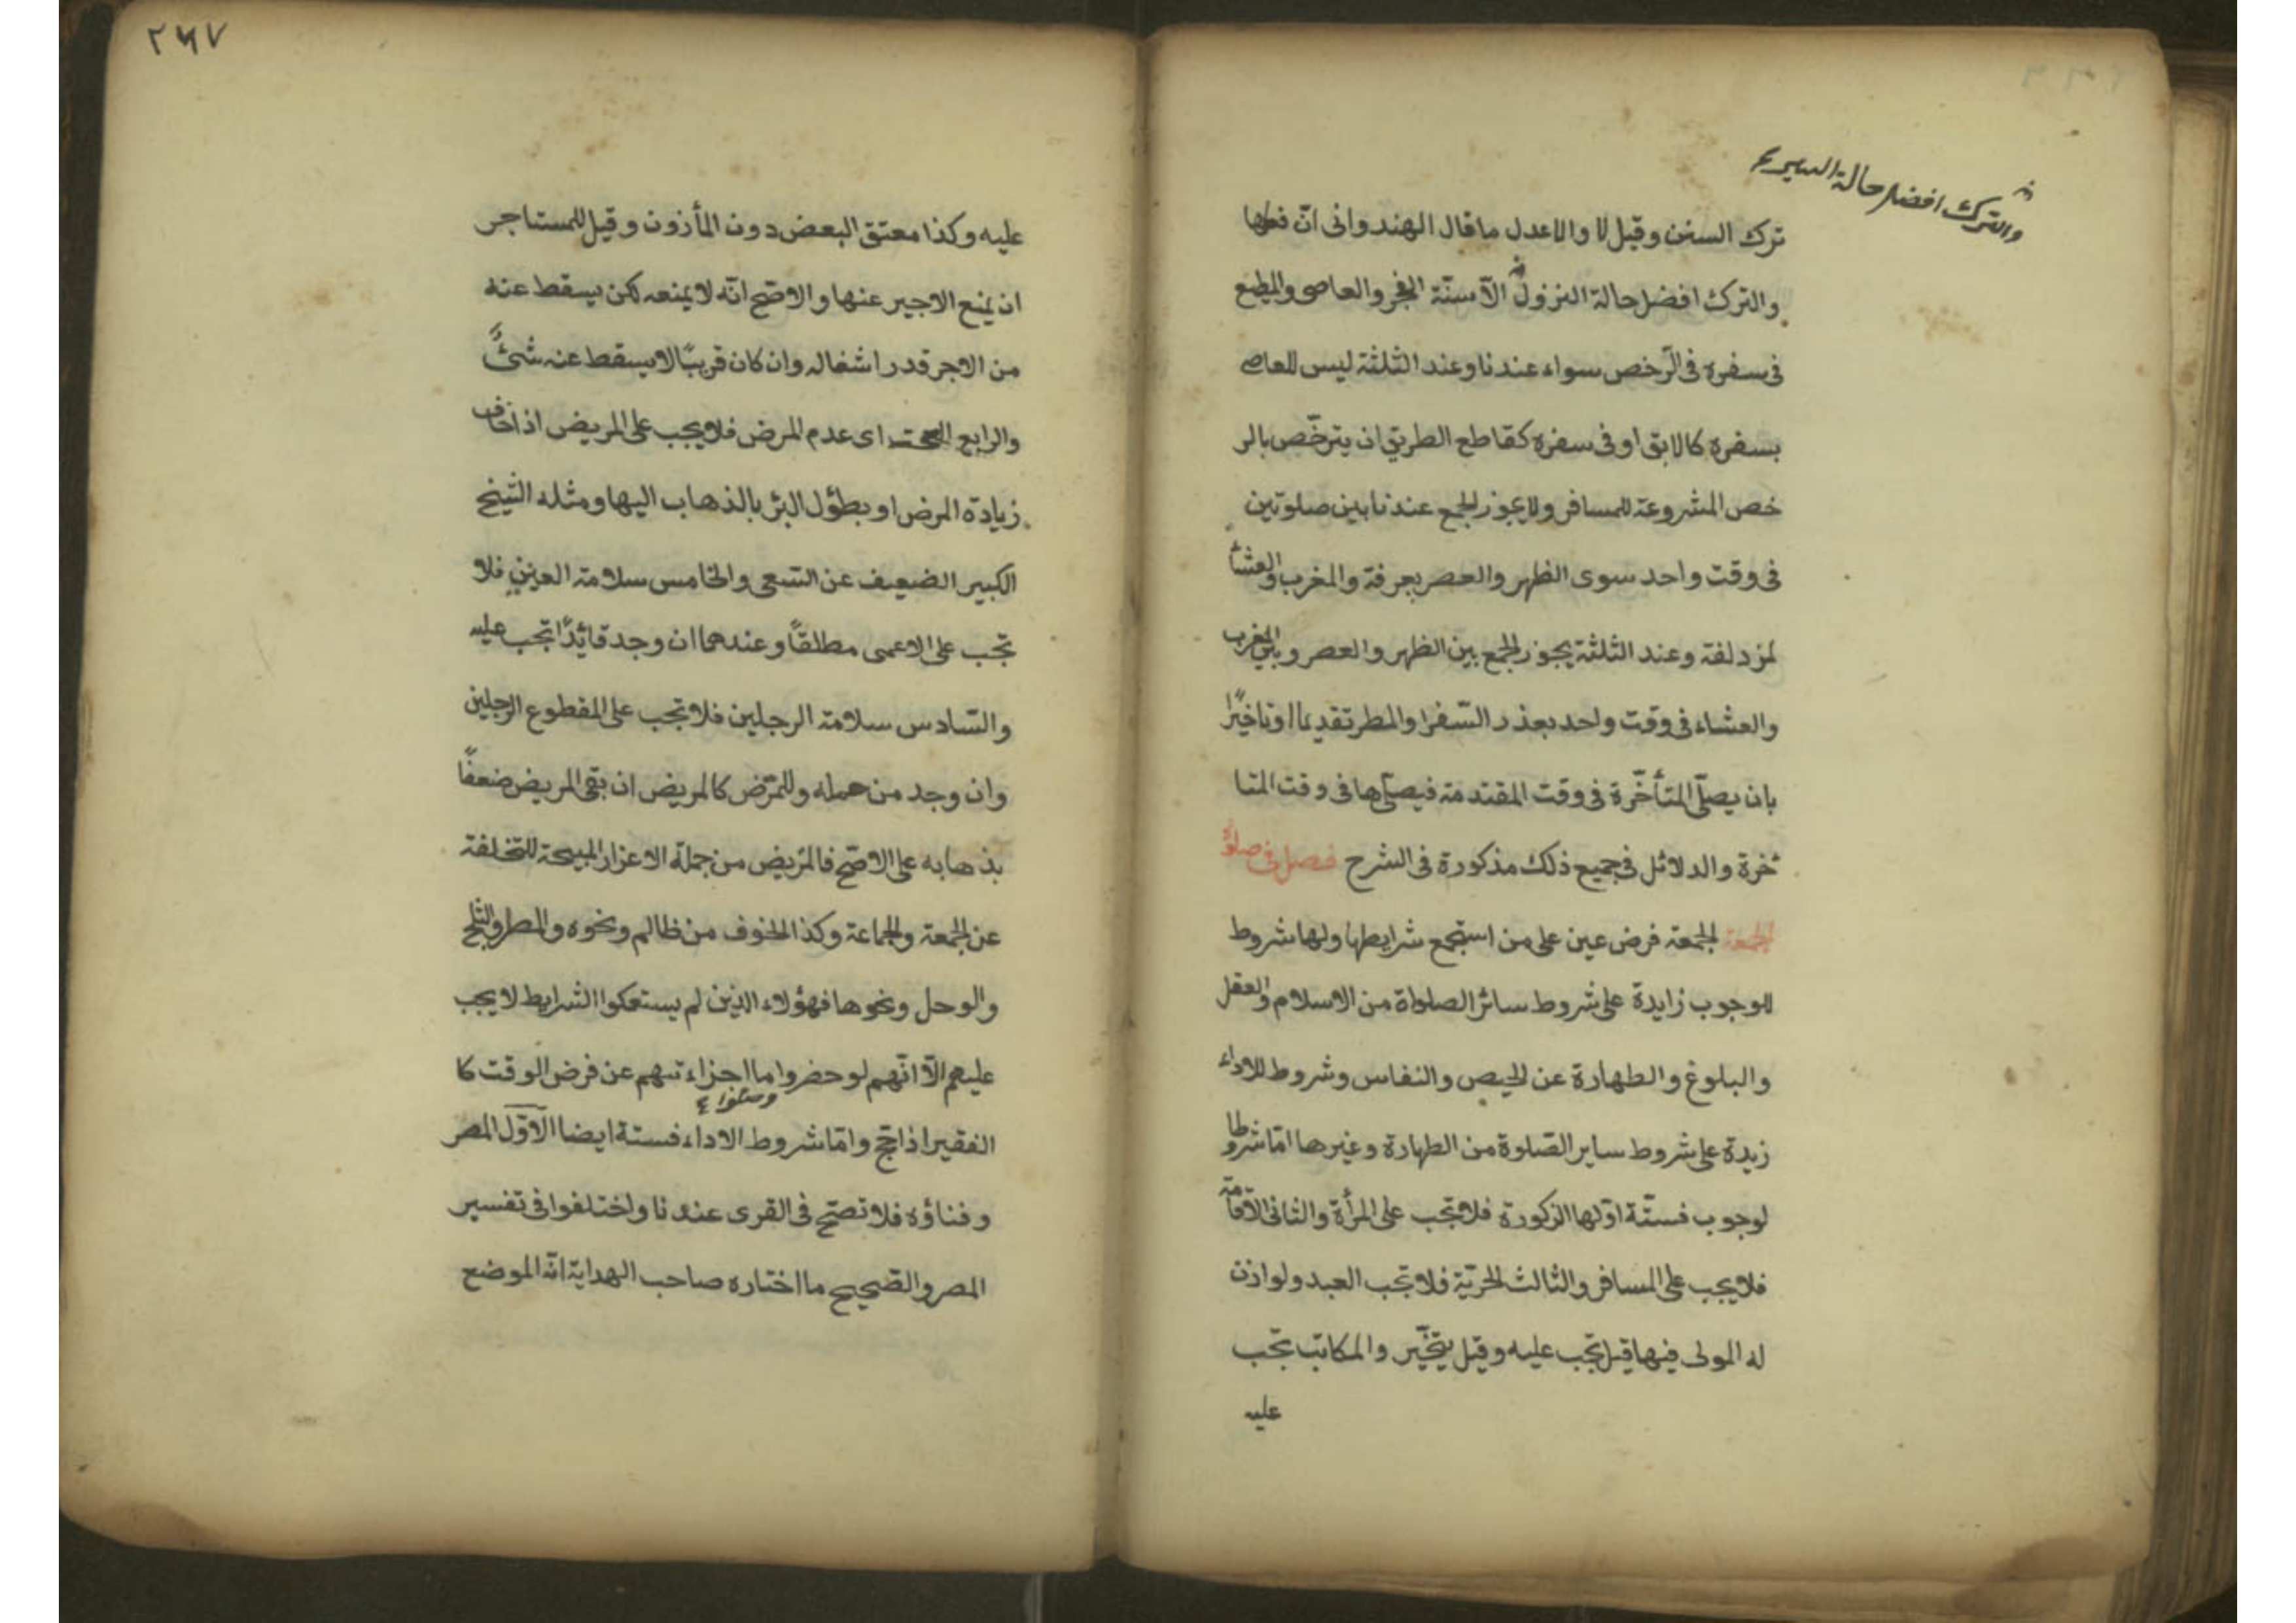 والترك افضل حالة السير
ترك السنن وقيل لا والاعدل ما قال الهندوانى انّ فعلها
والترك افضل حالة النزول الّا سنّة الفجر والعاصى والمطيع
فى سفره فى الرّخص سواء عندنا وعند الثلثة ليس للعاصى
بسفره كالابق او فى سفره كقاطع الطريق ان يترخّص بالر
خص المشروعة للمسافر ولا يجوز الجمع عندنا بين صلوتين
فى وقت واحد سوى الظهر والعصر بعرفة والمغرب والعشا
لمزدلفة وعند الثلثة يجوز الجمع بين الظهر والعصر وبين المغرب
والعشاء فى وقت واحد بعذر السّفر والمطر تقديما او تاخيرًا
بان يصلّى المتأخّرة فى وقت المقتدمة فيصلّيها فى وقت المتا
ٔخرة والدلائل فى جميع ذلك مذكورة فى الشرح فصل فى صلوة
الجمعة الجمعة فرض عين على من استجمع شرايطها ولها شروط
للوجوب زايدة على شروط سائر الصلواة من الاسلام والعقل
والبلوغ والطهارة عن الحيض والنفاس وشروط للاداء
زيدة على شروط ساير الصّلوة من الطهارة وغيرها امّا شروطا
لوجوب فستّة اوّلها الزكورة فلا تجب على المرأة والثانى الاقامة
فلا يجب على المسافر والثالث الحريّة فلا تجب العبد ولو اذن
له المولى فيها قيل تجب عليه وقيل يتخيّر والمكاتب تجب
عليه
٢٦٧
عليه وكذا معتق البعض دون المأزون وقيل للمستاجر
ان يمنع الاجير عنها والاصّح انّه لا يمنعه لكن يسقط عنه
من الاجر قدر اشغاله وان كان قريبًا لا يسقط عنه شئً
والرابع الصحت اى عدم المرض فلا يجب على المريض اذ اخاف
زيادة المرض او بطؤل البرٔ بالذهاب اليها ومثله الشيخ
الكبير الضعيف عن السّعى والخامس سلامة العينين فلا
تجب على الاعمى مطلقاً وعندهما ان وجد قائدًا تجب عليه
والسّادس سلامة الرجلين فلا تجب على المقطوع الرجلين
وان وجد من حمله وللممّرض كالمريض ان بقى المريض ضعفًا
بذهابه على الاصّح فالمريض من جملة الاعزار المبيحة للتخلفة
عن الجمعة والجماعة وكذا الخوف من ظالم ونحوه والمطر والثلج
والوحل ونحوها فهؤلاء الذين لم يستعكوا الشرايط لا يجب
عليهم الّا انّهم لو حضروا ما اجزاء تهم عن فرض الوقت كا
وصلوا
الفقير اذا حج وامّا شروط الاداء فستة ايضا الاوّل المصر
وفناؤه فلا تصّح فى القرى عندنا واختلفوا فى تفسير
المصر والصّحيح ما اختاره صاحب الهداية انّه الموضع